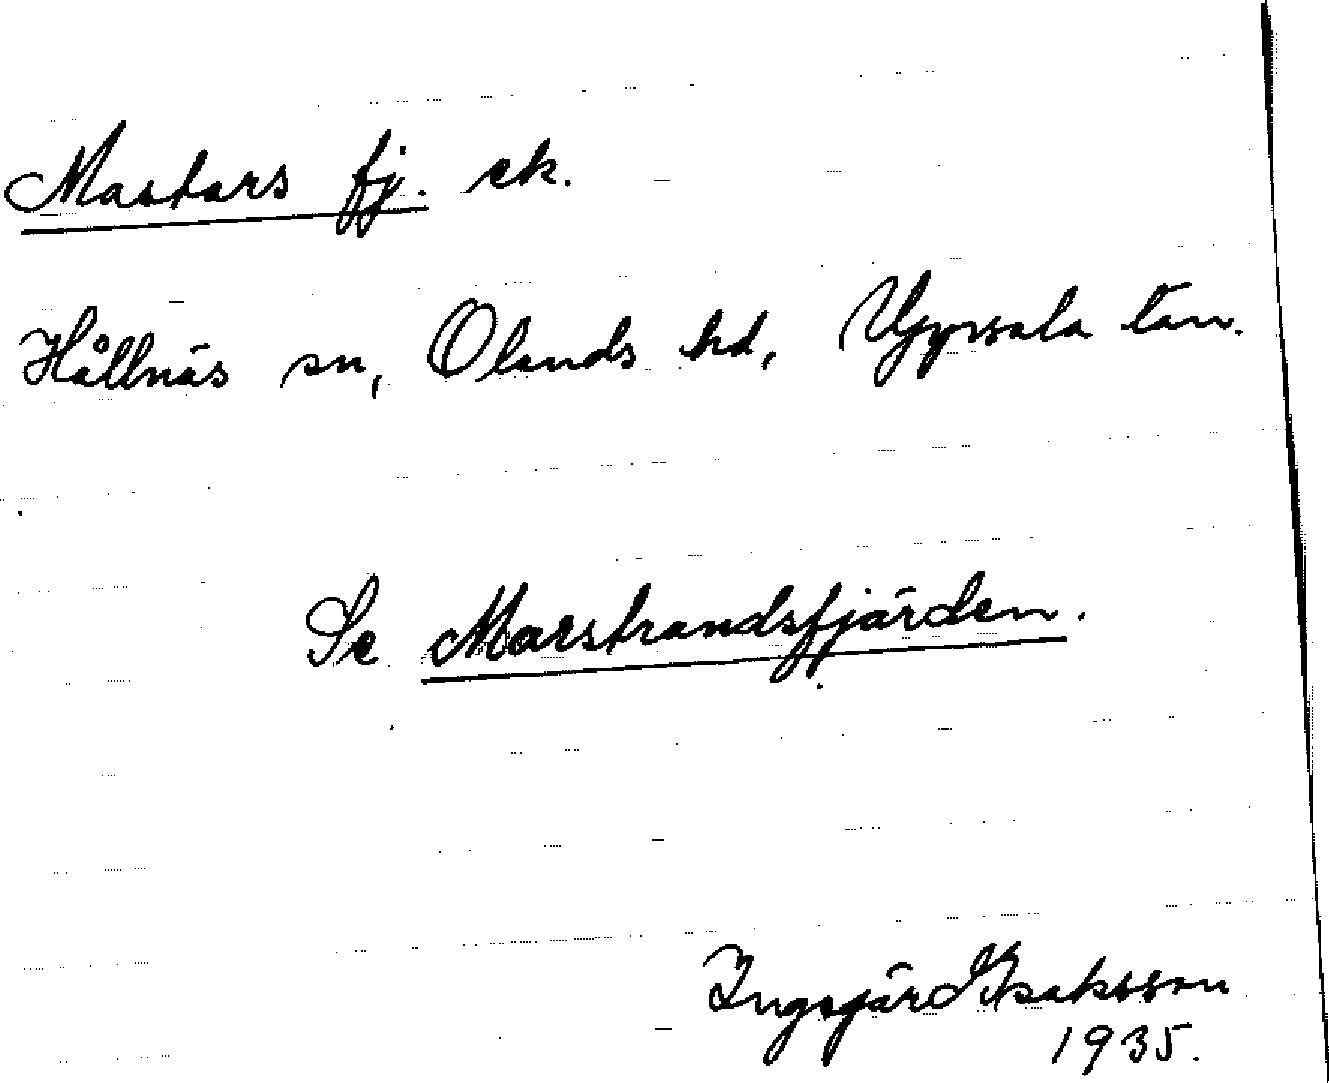 Mastars fj. ek.
Hållnäs sn, Olands hd, Uppsala län.
Se Marstrandsfjärden.
Ingegärd Isaksson
1935.